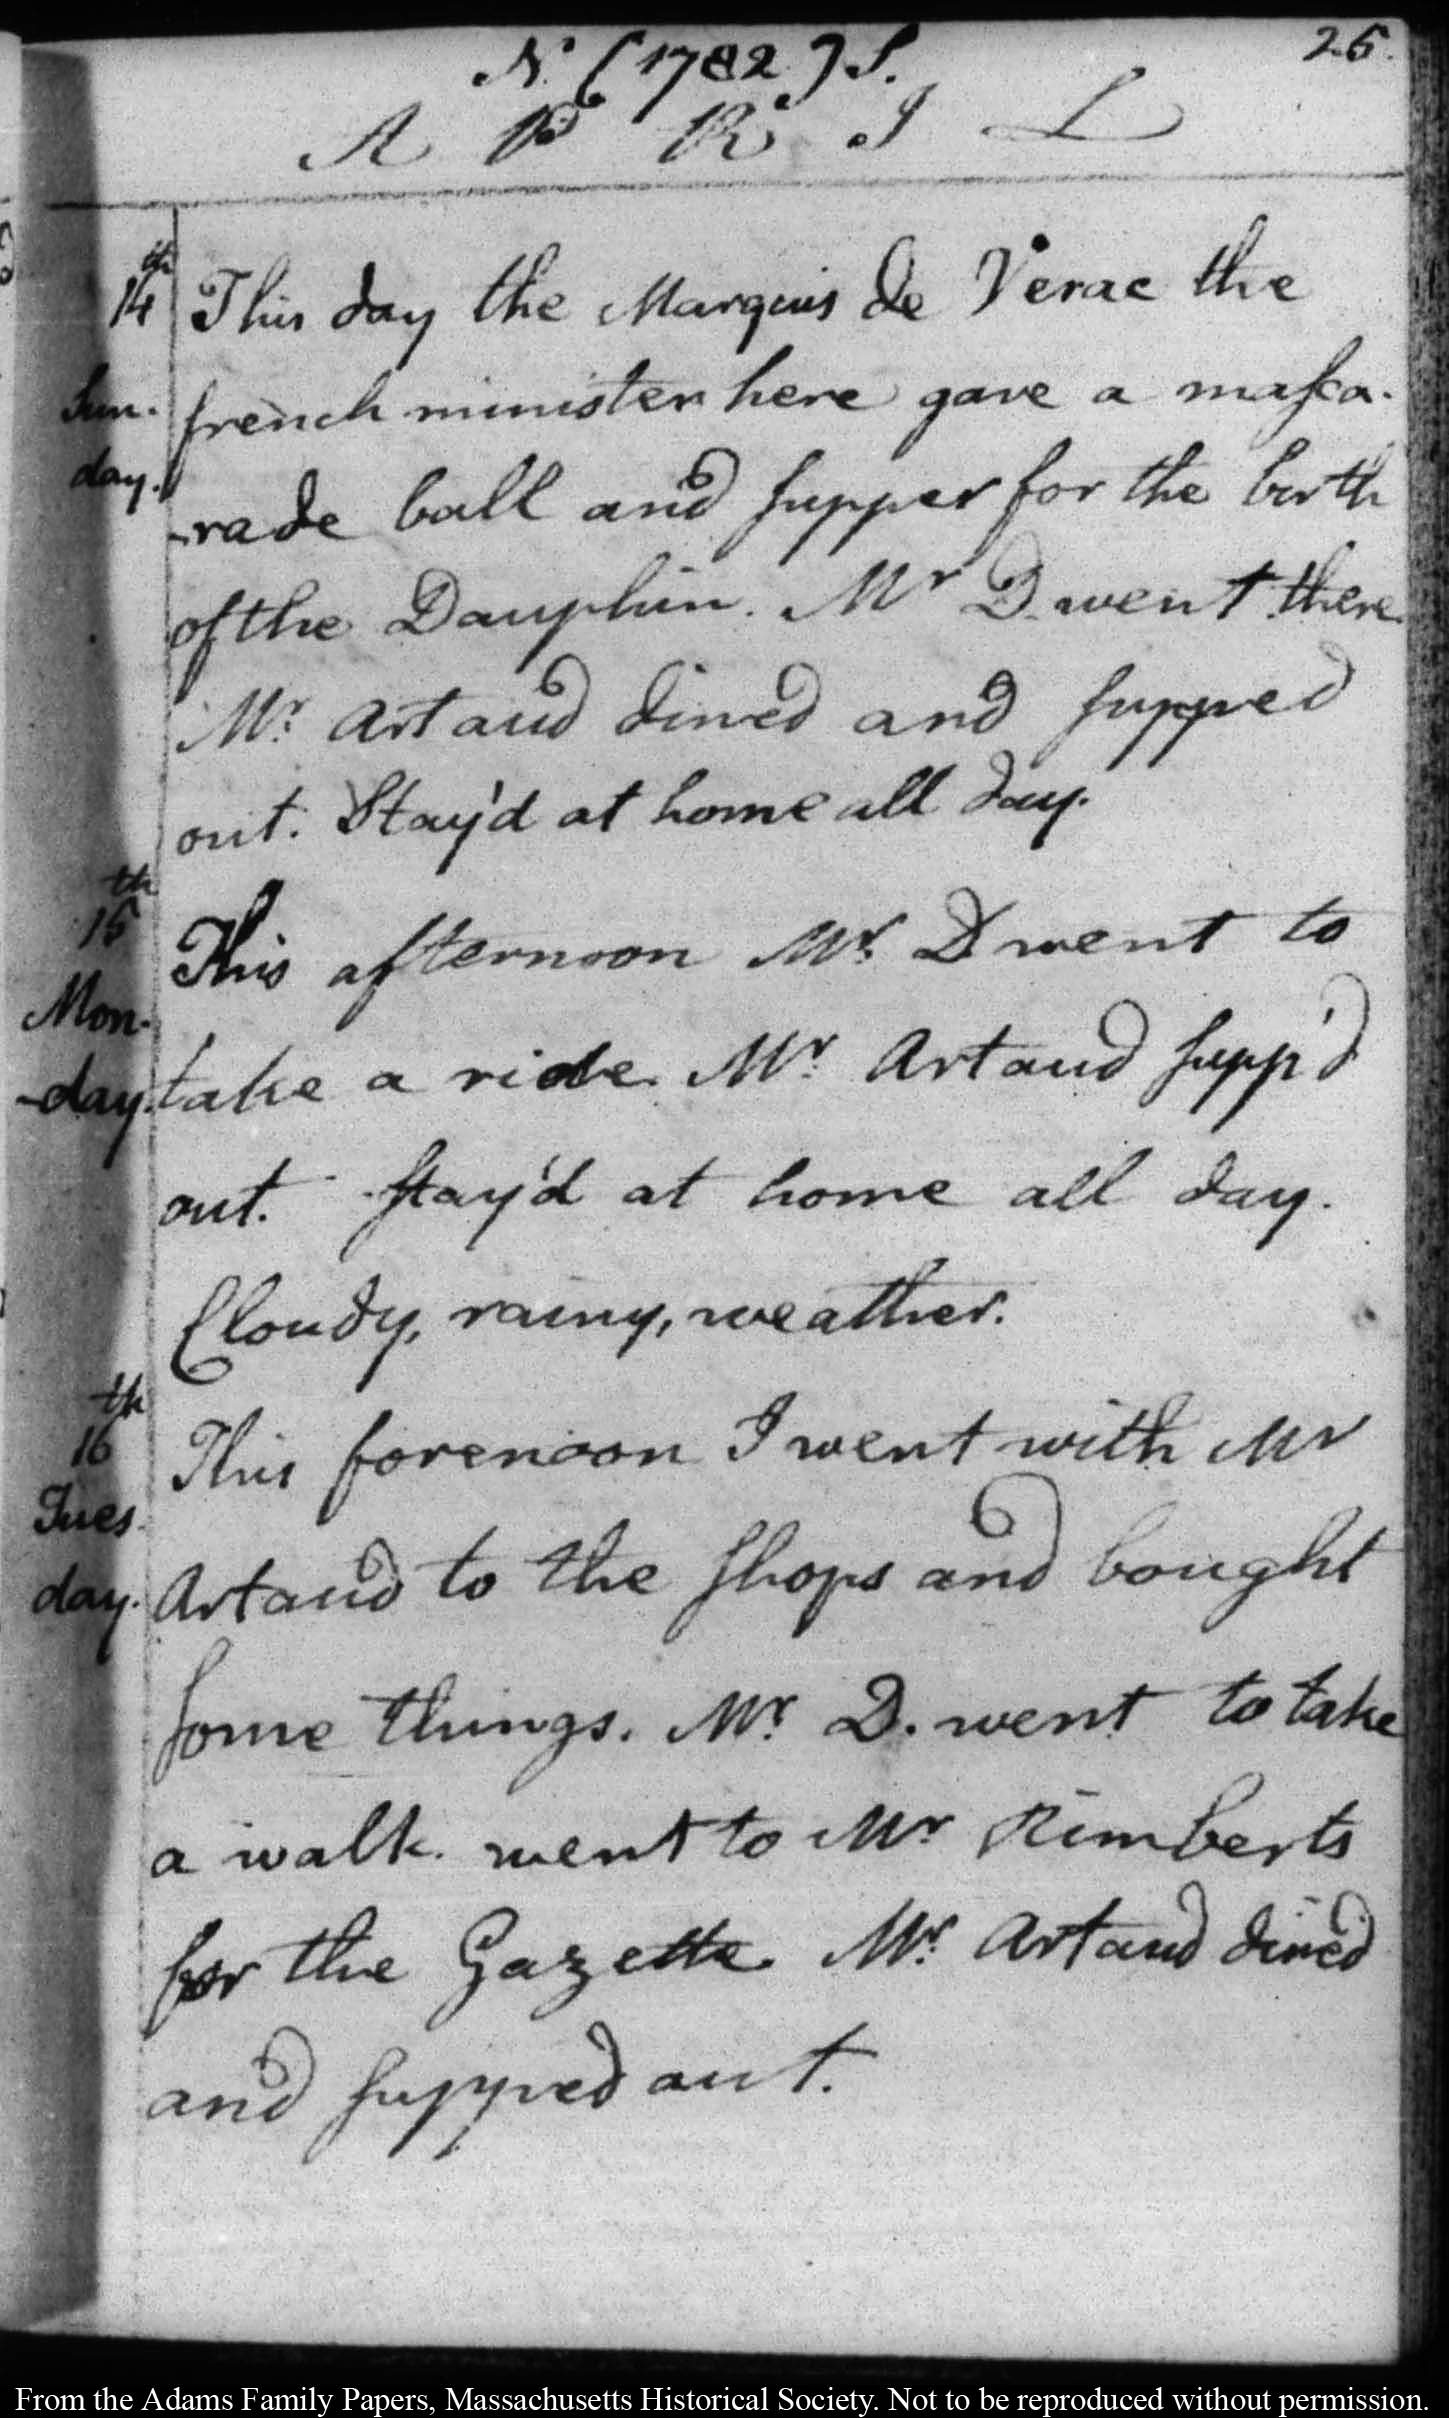 N. (1782) S.
25.
A P R I L
14th This day the Marquis de Verac the
Sun- french minister here gave a maſca-
day. -rade ball and ſupper for the birth
of the Dauphin. Mr D. went there
Mr. Artaud dined and ſupped
out. Stay'd at home all day.
15th This afternoon Mr. D. went to
Mon- take a ride. Mr. Artaud ſupp'd
-day. out. ſtay'd at home all day.
Cloudy, rainy, weather.
16th This forenoon I went with Mr
Tues- Artaud to the ſhops and bought
day. ſome things. Mr. D. went to take
a walk. went to Mr Rimberts
for the Gazette. Mr. Artaud dined
and ſupped out.
From the Adams Family Papers, Massachusetts Historical Society. Not to be reproduced without permission.